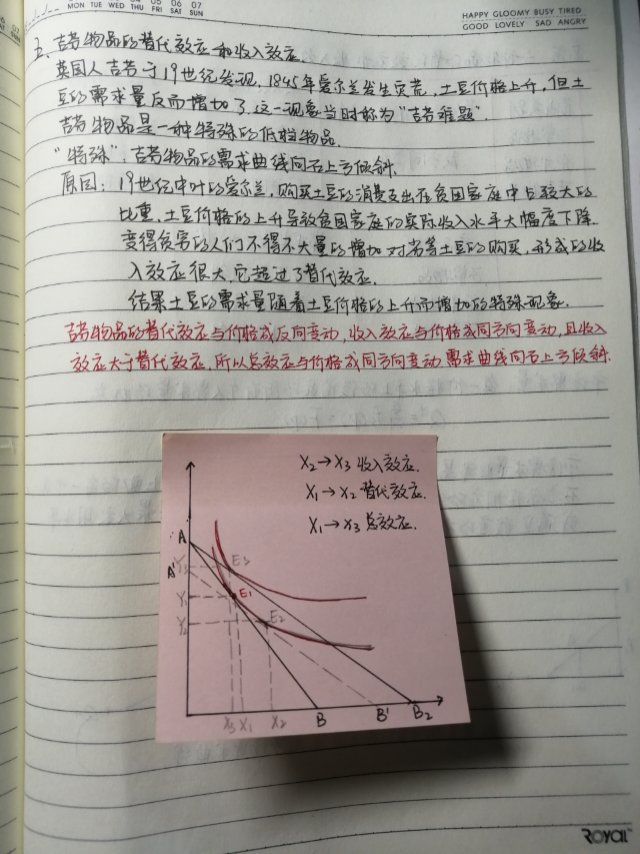 04 05 06 07
MON TUE WED THU FRI SAT SUN
HAPPY GLOOMY BUSY TIRED
GOOD LOVELY SAD ANGRY
吉芬物品的替代效应和收入效应.
英国人吉芬于19世纪发现, 1845年爱尔兰发生灾荒, 土豆价格上升, 但土
豆的需求量反而增加了, 这一现象当时称为"吉芬难题".
吉芬物品是一种特殊的低档物品.
"特殊": 吉芬物品的需求曲线向右上方倾斜.
原因: 19世纪中叶的爱尔兰, 购买土豆的消费支出在贫困家庭中占较大的
比重, 土豆价格的上升导致贫困家庭的实际收入水平大幅度下降.
变得贫穷的人们不得不大量的增加对劣等土豆的购买, 形成的收
入效应很大, 它超过了替代效应.
结果土豆的需求量随着土豆价格的上升而增加的特殊现象.
吉芬物品的替代效应与价格成反向变动, 收入效应与价格成同方向变动, 且收入
效应大于替代效应, 所以总效应与价格成同方向变动 需求曲线向右上方倾斜.
X2→X3 收入效应.
X1→X2 替代效应.
X1→X3 总效应.
A
A'
Y3
Y1
Y2
E3
E1
E2
X3 X1 X2 B B' B2
ROYAL